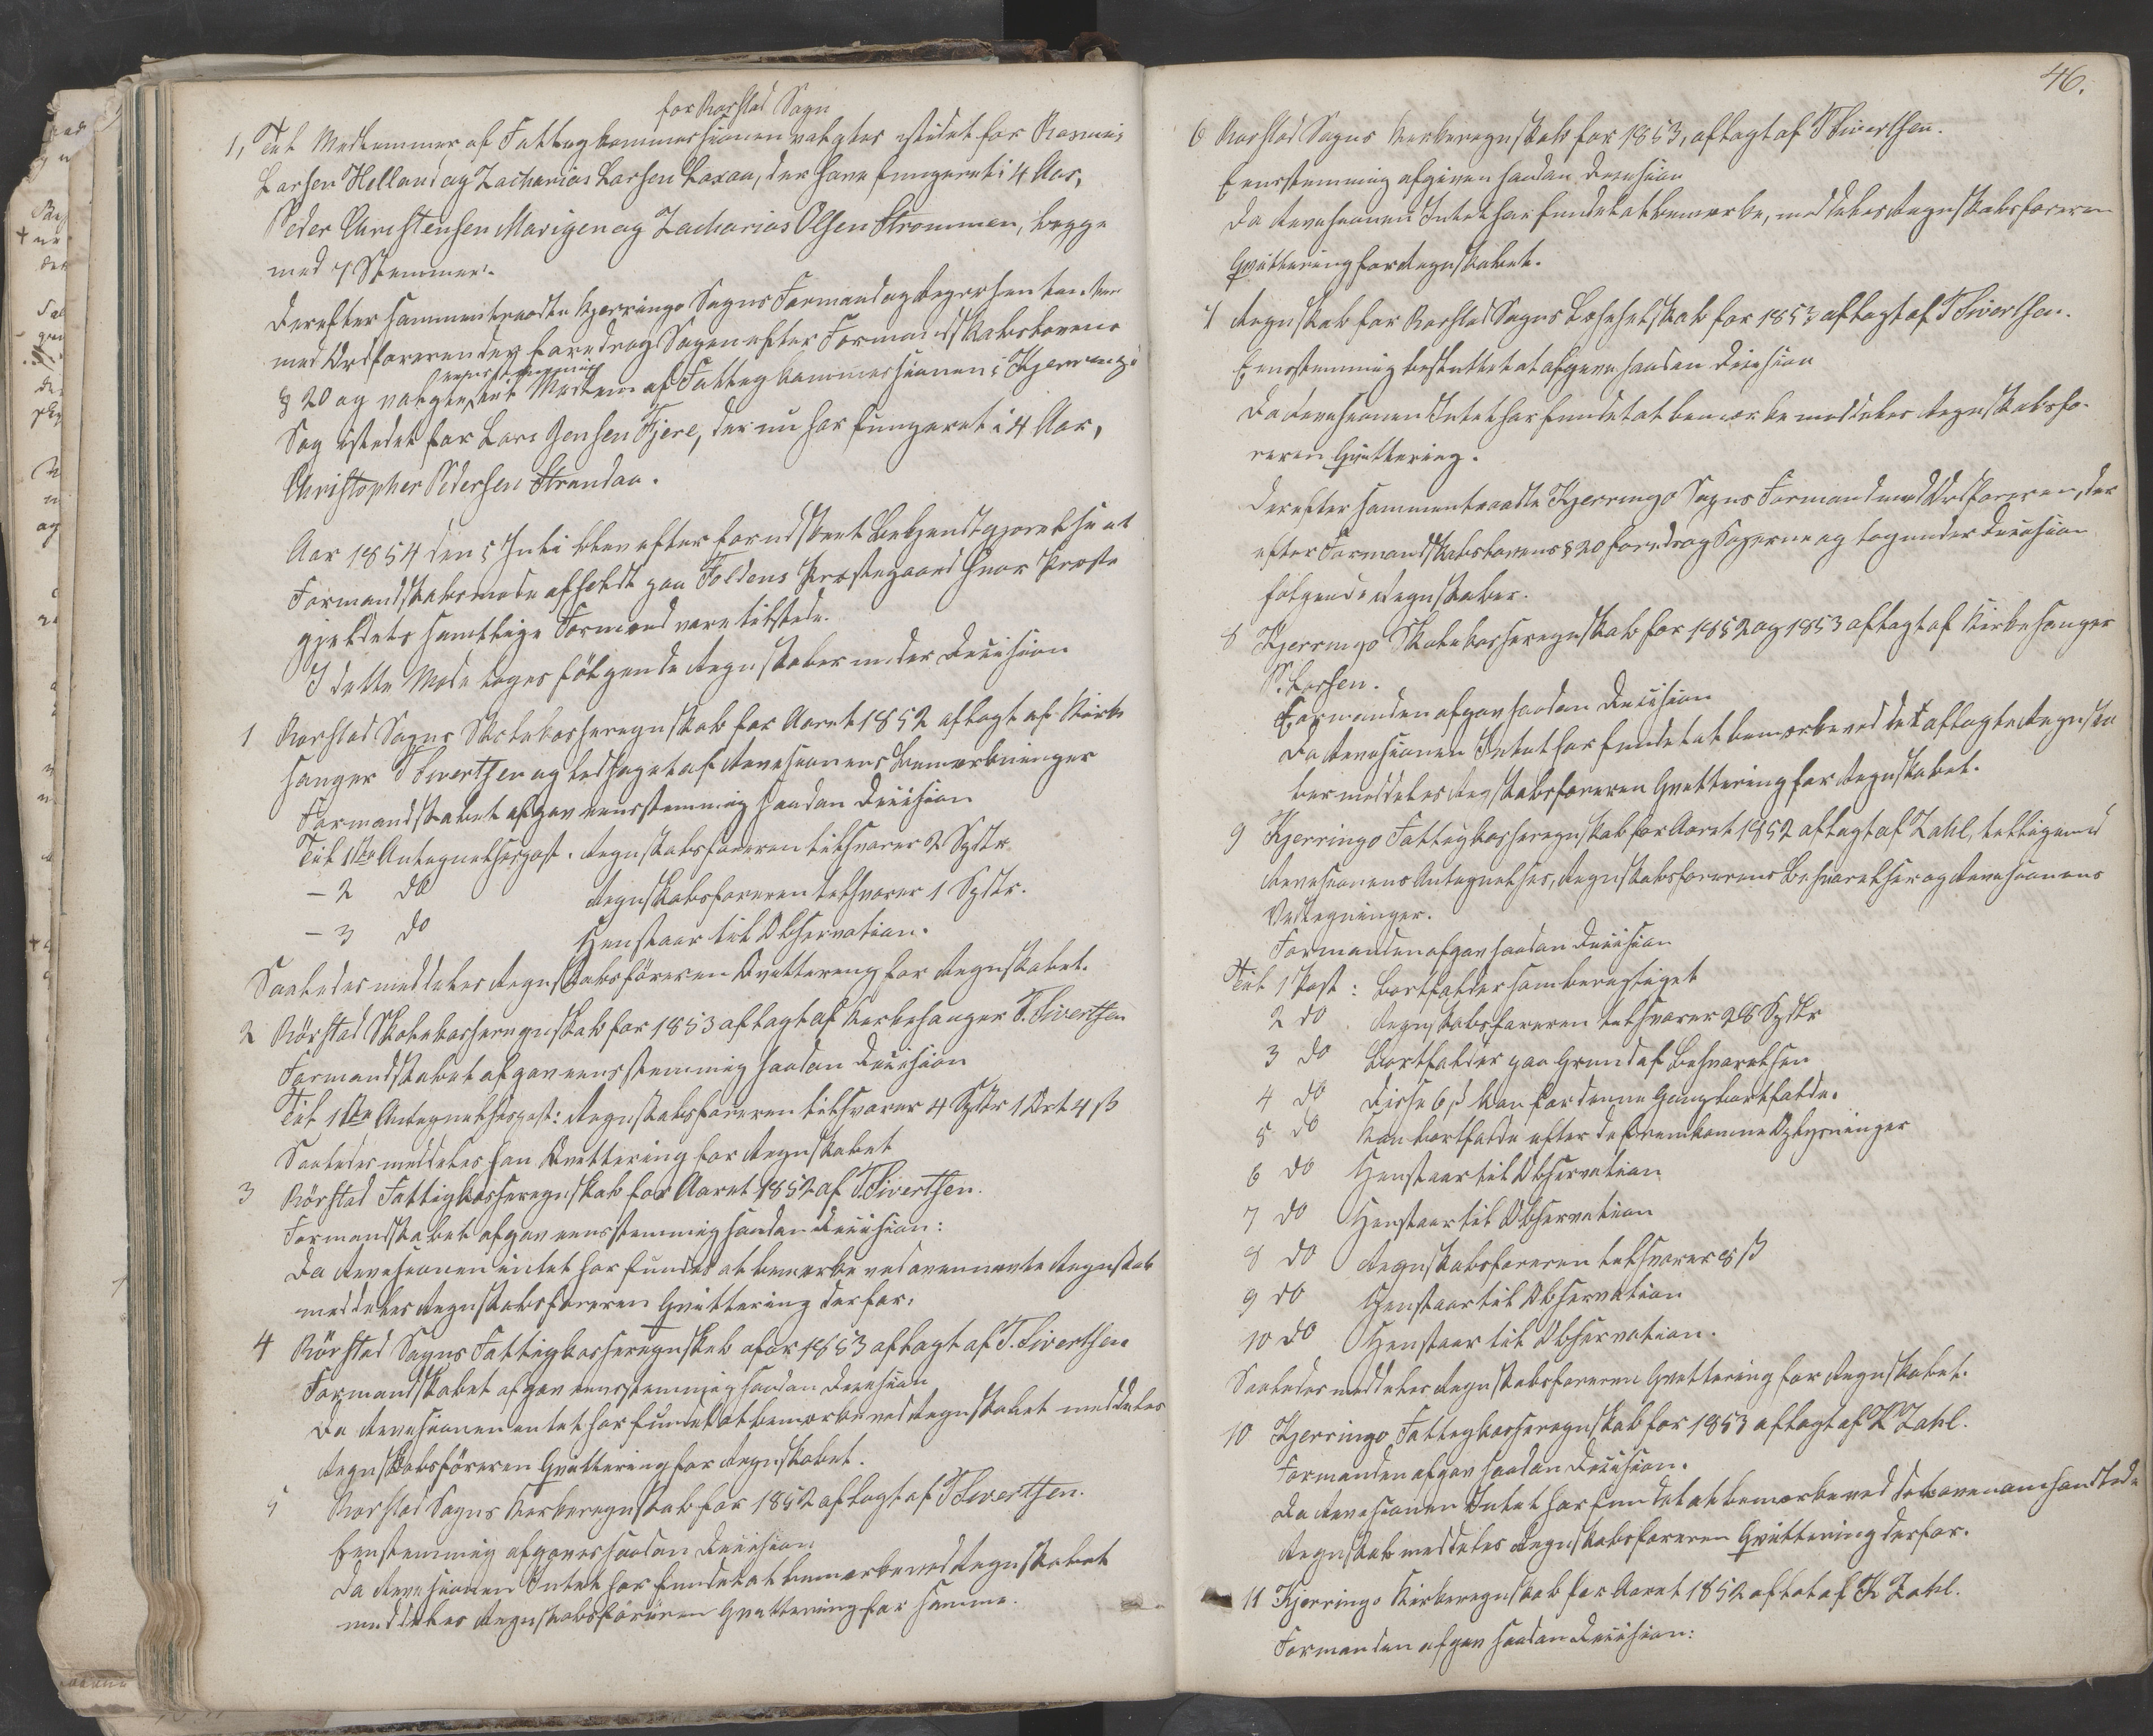 for Rørstad Sogn
1, Til Medlemmer af Fattigkommissionen valgtes istedet for Rasmus
Larsen Helland og Zacharias Larsen Laxaa, der have fungeret i 4 Aar,
Peder Christensen Mörigen og Zacharias Olsen Strømmen, begge
med 7 Stemmer.
Derefter sammentraadte Kjerringø Sogns Formand og
med Ordføreren der foredrog Sagen efter Formandskabslovens
eensstemmig
§ 20 og valgtes til Medlem af Fattigkommissionen i Kjerringø
Sog istedet for Lars Jensen Fjere, der nu har fungeret i 4 Aar,
Christopher Pedersen Strandaa.
Aar 1854 den 5 Juli blev efter forudskeet Bekjendtgjørelse et
Formandskabsmøde afholdt paa Foldens Præstegaard hvor Præste
gjeldets samtlige Formænd vare tilstede.
I dette Møde toges følgende Regnskaber under Decision
1 Rørstad Sogns Skolekasseregnskab for Aaret 1852 aflagt af Kirke
sanger T Sivertsen og ledsaget af Revisionens Bemærkninger
Formandskabet afgav eensstemmig saadan Decision
Til 1ste Antegnelsespost. Regnskabsføreren tilsvarer 2 Spdlr
- 2 do Regnskabsføreren tilsvarer 1 Spdlr.
- 3 do Henstaar til Observation.
Saaledes meddeles Regnskabsføreren Qvittering for Regnskabet.
2 Rörstad Skolekasseregnskab for 1853 aflagt af Kirkesanger T. Sivertsen
Formandskabet afgav eensstemmig saadan Decision
Til 1ste Antegnelsespost: Regnskabsføreren tilsvarer 4 Spdlr 1 Ort 4 ß
Saaledes meddeles han Qvittering for Regnskabet
3 Rörstad Fattigkasseregnskab for Aaret 1852 af T Sivertsen.
Formandskabet afgav eensstemmig saadan Decision:
Da Revisionen intet har fundet at bemærke ved ovennævnte Regnskab
meddeles Regnskabsføreren Qvittering derfor.
4 Rörstad Sogns Fattigkasseregnskab for 1853 aflagt af T. Sivertsen
Formandskabet afgav eensstemmig saadan Decision
Da Revisionen intet har fundet at bemærke ved Regnskabet meddeles
Regnskabsföreren Qvittering for Regnskabet.
5 Rørstad Sogns Kirkeregnskab for 1852 aflagt af T Sivertsen.
Eenstemmig afgaves saadan Decision
Da Revisionen Intet har fundet at bemærke ved Regnskabet
meddeles Regnskabsføreren Qvittering for samme.
46.
6 Rørstad Sogns Kirkeregnskab for 1853, aflagt af T Sivertsen.
Eensstemmig afgiven saadan Decision
Da Revisionen Intet har fundet at bemærke, meddeles Regnskabsføreren
Qvittering for Regnskabet.
7 Regnskab for Rørstad Sogns Læseselskab for 1853 aflagt af T Sivertsen.
Eensstemmig besluttet at afgive saadan Decision
Da Revisionen Intet har fundet at bemærke meddeles Regnskabsfø-
reren Qvittering.
Derefter sammentraadte Kjerringø Sogns Formænd med Ordføreren, der
efter Formandskabslovens § 20 foredrog Sagerne og tog under Decision
følgende Regnskaber.
8 Kjerringø Skolekasseregnskab for 1852 og 1853 aflagt af Kirkesanger
P. Larsen.
Formanden afgav saadan Decision
Da Revisionen Intet har fundet at bemærke ved det aflagte Regnska
ber meddeles Regnskabsføreren Qvittering for Regnskabet.
9 Kjerringø Fattigkasseregnskab for Aaret 1852 aflagt af Zahl, tilligemed
Revisionens Antegnelser, Regnskabsførerens Besvarelser og Revisionens
Paategninger.
Formanden afgav saadan Decision
Til 1 Post: Bortfalder som berigtiget
2 do Regnskabsføreren tilsvarer 28 Spdlr
3 do Bortfalder paa Grund af Besvarelsen
4 do Disse 6 ß kan for denne Gang bortfalde.
5 do Kan bortfalde efter de fremkomne Oplysninger
6 do Henstaar til Observation
7 do Henstaar til Observation
8 do Regnskabsføreren tilsvarer 8 ß
9 do Henstaar til Observation
10 do Henstaar til Observation.
Saaledes meddeles Regnskabsføreren Qvittering for Regnskabet.
10 Kjerringø Fattigkasseregnskab for 1853 aflagt af K Zahl.
Formanden afgav saadan Decision.
Da Revisionen Intet har fundet at bemærke ved det ovenomhandlede
Regnskab meddeles Regnskabsføreren Qvittering derfor.
11 Kjerringø Kirkeregnskab for Aaret 1852 aflat af K Zahl.
Formanden afgav saadan Decision: